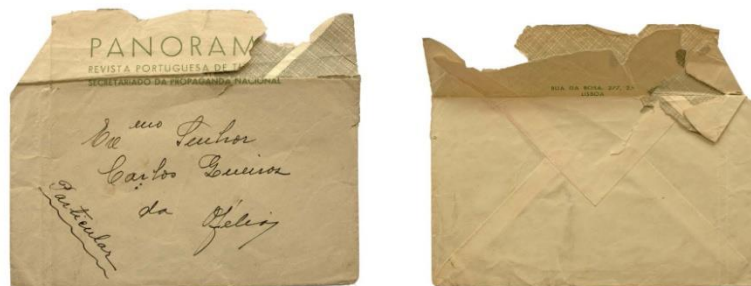 PANORAM
REVISTA PORTUGUESA DE T
SECRETARIADO DA PROPAGANDA NACIONAL
Exmo Senhor
Carlos Queiroz
da Ofelia
Particular
RUA DA ROSA,
LISBOA